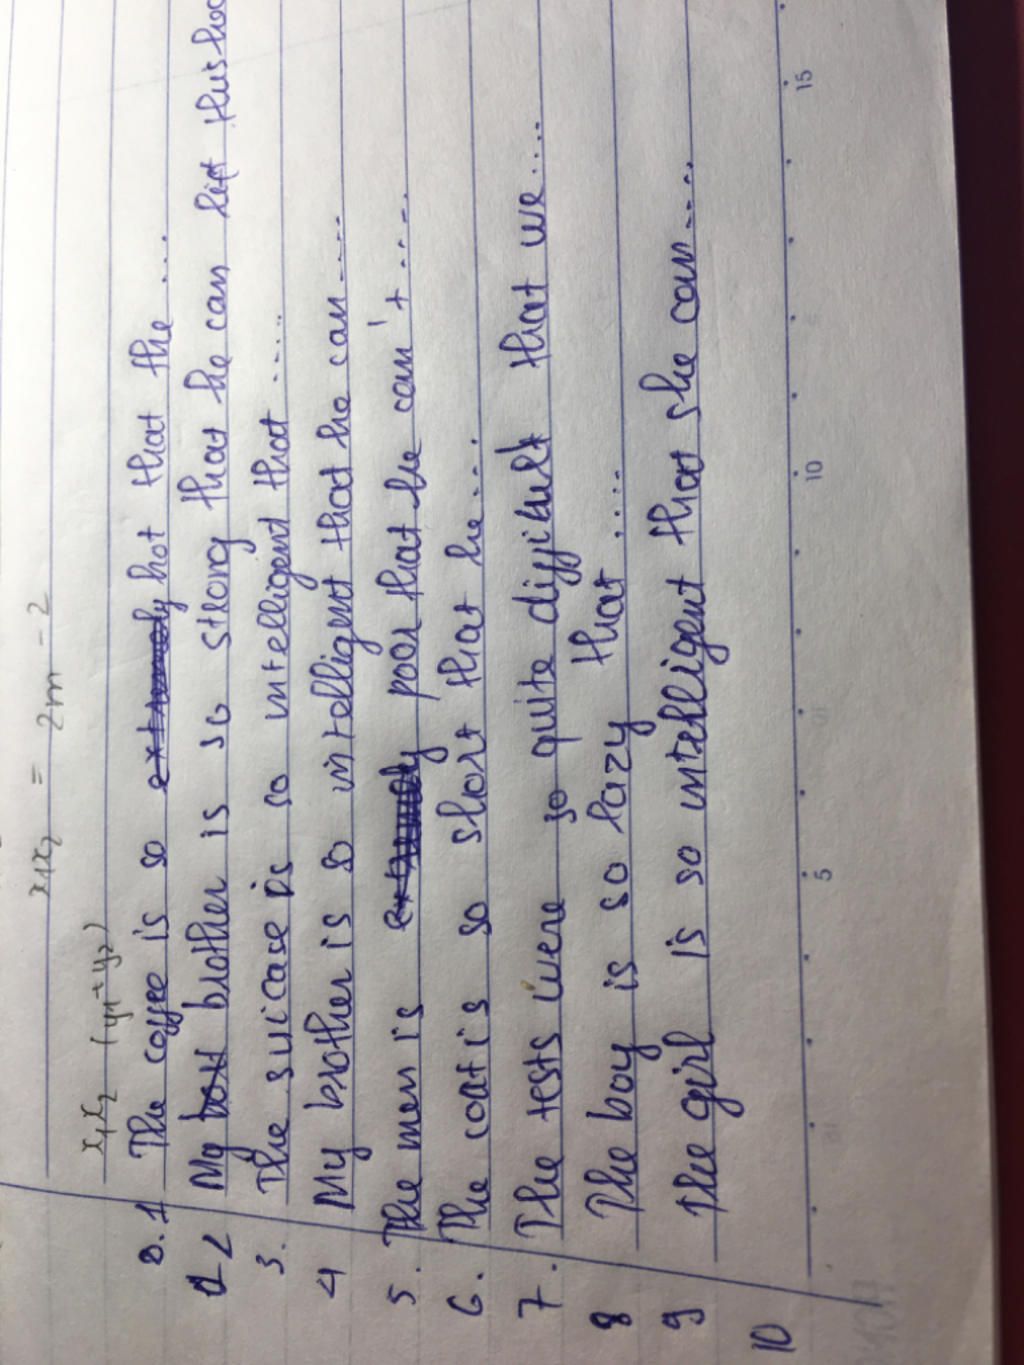 x1x2 = 2m - 2
x1x2 (y1+y2)
1 The coffee is so hot that the ...
2 My brother is so strong that he can lift this
3. The suicase is so intelligent that ....
4 My brother is so intelligent that he can ....
5. The men is poor that he can't ....
6. The coat is so short that he ....
7. The tests were so quite difficult that we ....
8 The boy is so lazy that ....
9 The girl is so intelligent that she can ....
10
5 10 15